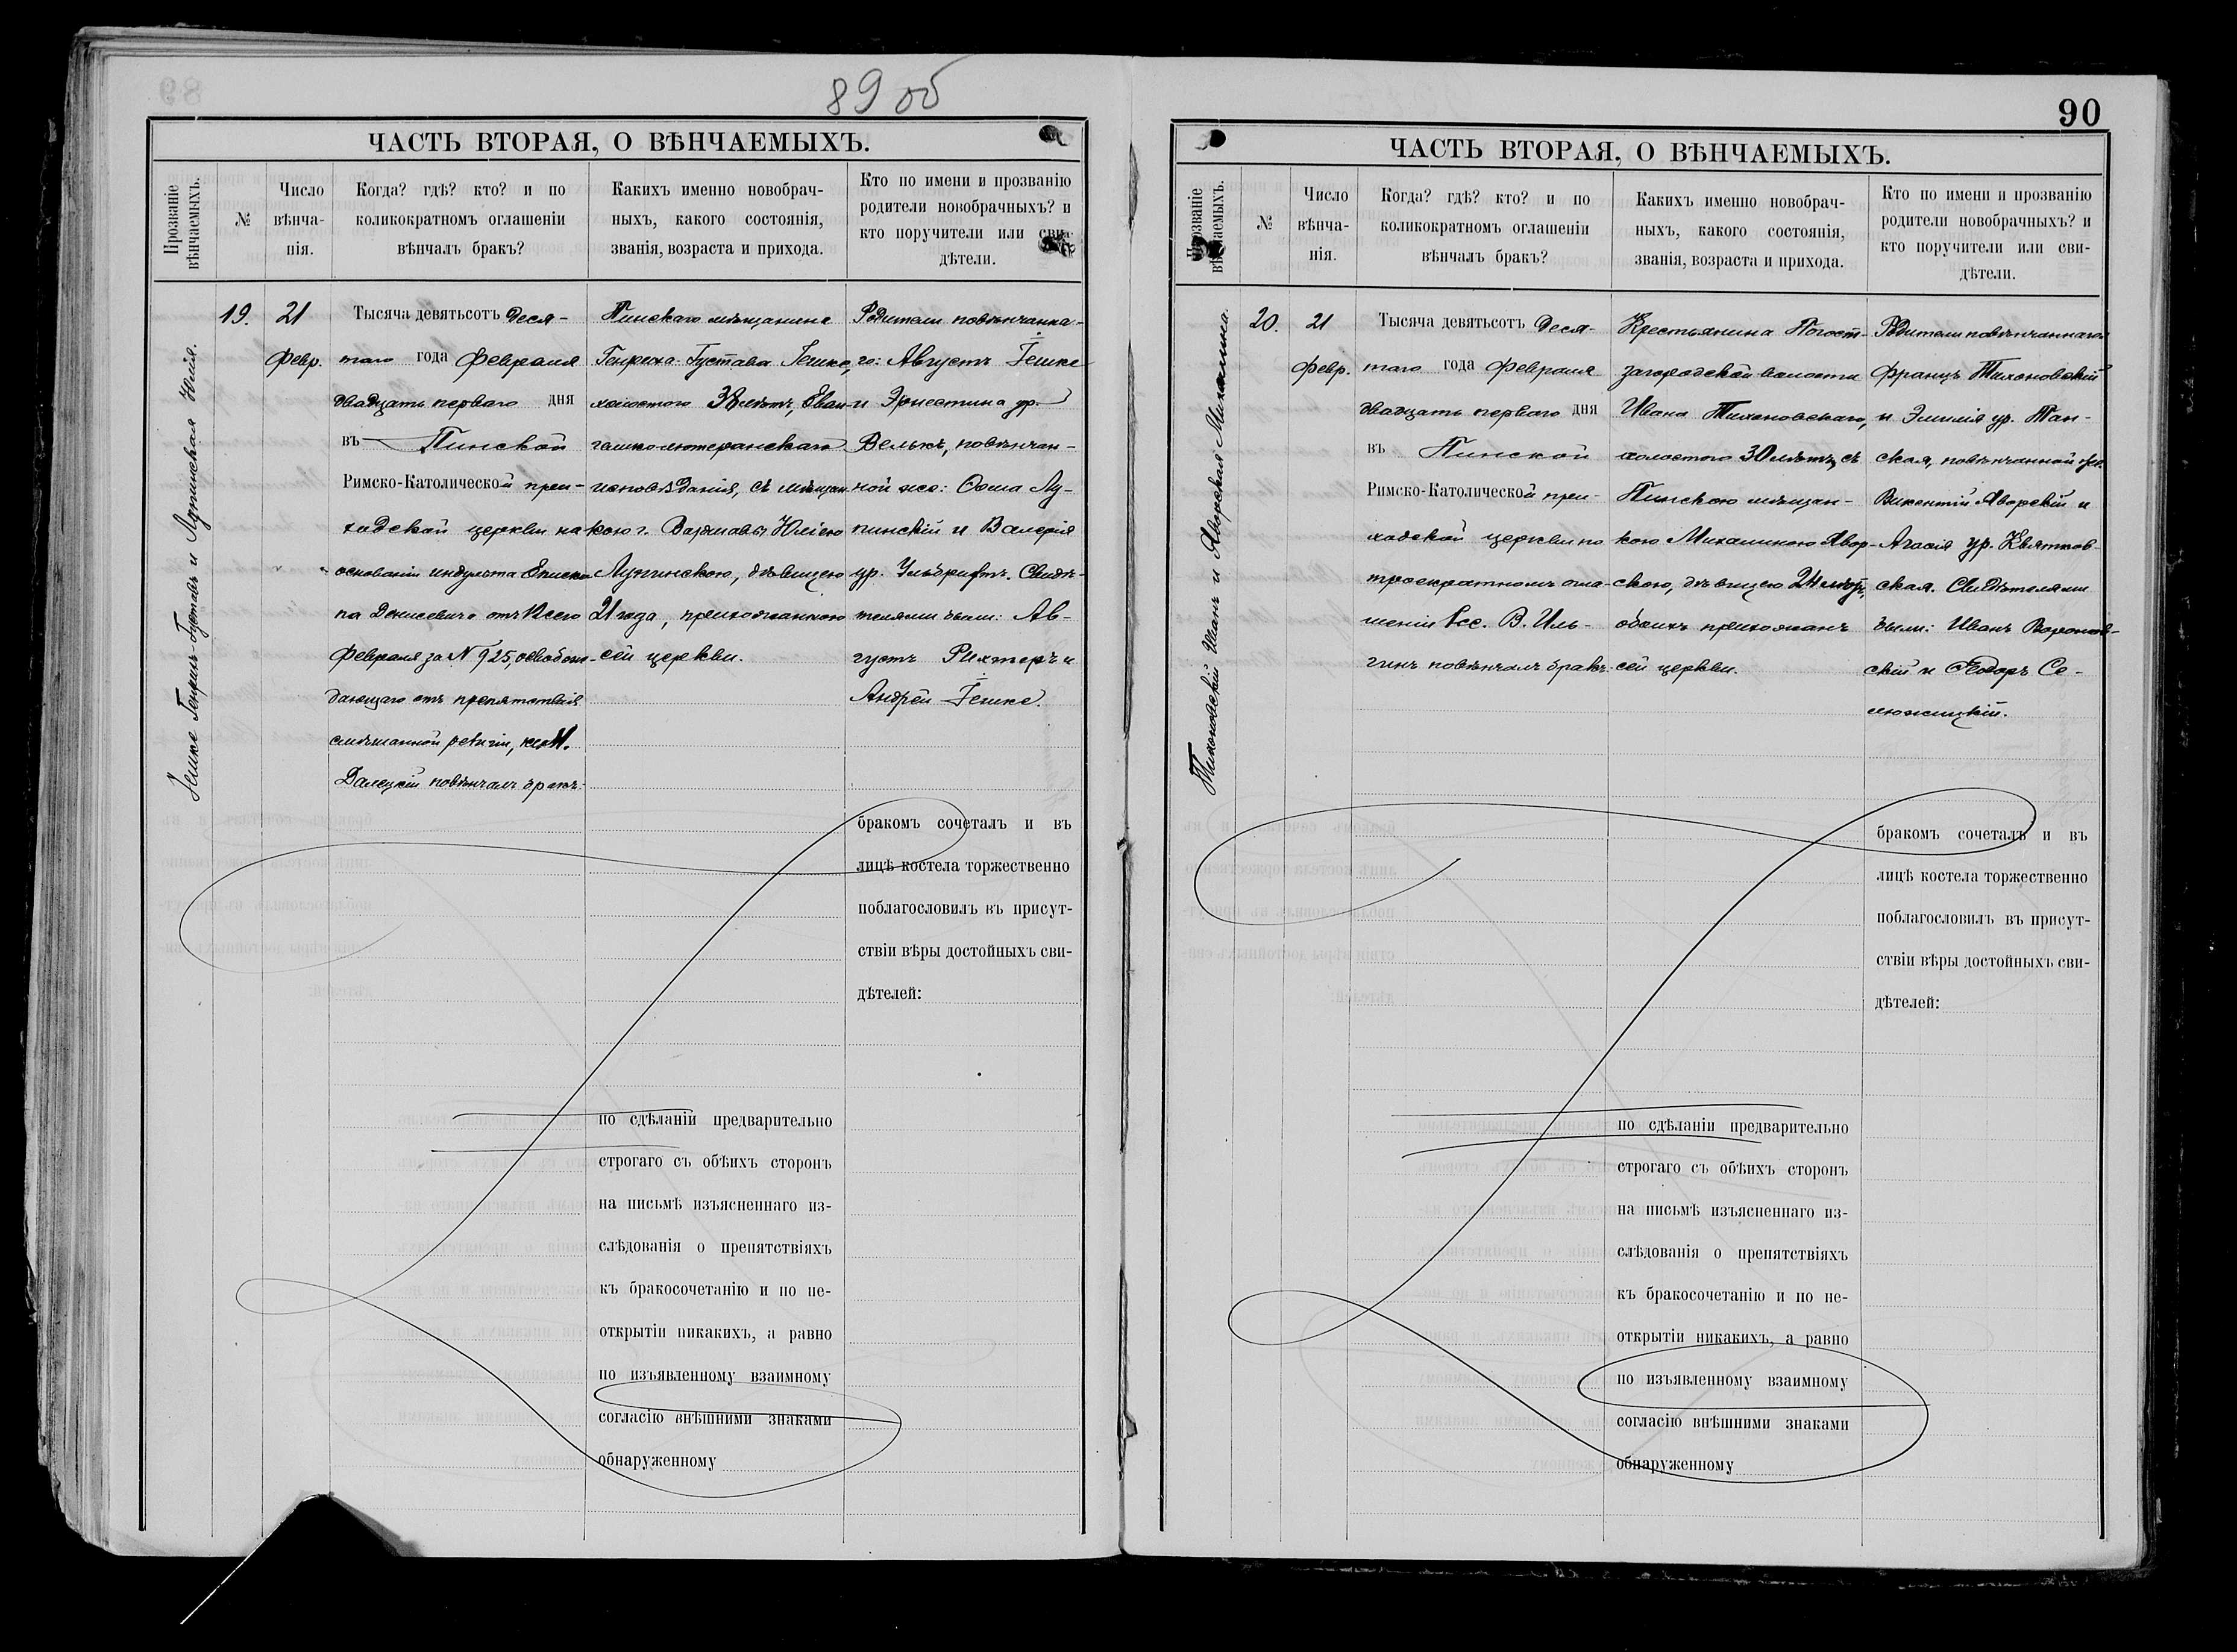 89 об
ЧАСТЬ ВТОРАЯ, О ВѢНЧАЕМЫХЪ.
Прозваніе вѣнчаемыхъ.
№
Число вѣнча-
нія.
Когда? гдѣ? кто? и по
коликократномъ оглашеніи
вѣнчалъ бракъ?
Какихъ именно новобрач-
ныхъ, какого состоянія,
званія, возраста и прихода.
Кто по имени и прозванію
родители новобрачныхъ? и
кто поручители или сви-
дѣтели.
Гешке Генрихъ-Густавъ и Лупинская Юлія.
19.
21
Февр.
Тысяча девятьсотъ Деся-
таго года Февраля
двадцать перваго дня
въ Пинской
Римско-Католической при-
ходской церкви на
основаніи индульта Еписко-
па Денисевича отъ
Февраля за № 925, освобож-
дающаго отъ препятствія
смѣшанной религіи,
Далецкій повѣнчалъ бракъ
Пинскаго мѣщанина
Генриха-Густава Гешке,
холостого 38 лѣтъ, Еван-
гелико-лютеранскаго
исповѣданія, съ мѣщан-
кою г. Варшавы Юліею
Лупинскою, дѣвицею
21 года, прихожанкою
сей церкви.
Родители повѣнчанна-
го: Августъ Гешке
и Эрнестина ур.
Велькъ, повѣнчан-
ной же: Осипъ Лу-
пинскій и Валерія
ур. Ульбрихтъ. Свидѣ-
телями были: Ав-
густъ Рихтеръ и
Андрей Гешке.
бракомъ сочеталъ и въ
лицѣ костела торжественно
поблагословилъ въ присут-
ствіи вѣры достойныхъ сви-
дѣтелей:
по сдѣланіи предварительно
строгаго съ обѣихъ сторонъ
на письмѣ изъясненнаго из-
слѣдованія о препятствіяхъ
къ бракосочетанію и по не-
открытіи никакихъ, а равно
по изъявленному взаимному
согласію внѣшними знаками
обнаруженному
90
ЧАСТЬ ВТОРАЯ, О ВѢНЧАЕМЫХЪ.
Прозваніе вѣнчаемыхъ.
№
Число вѣнча-
нія.
Когда? гдѣ? кто? и по
коликократномъ оглашеніи
вѣнчалъ бракъ?
Какихъ именно новобрач-
ныхъ, какого состоянія,
званія, возраста и прихода.
Кто по имени и прозванію
родители новобрачныхъ? и
кто поручители или сви-
дѣтели.
Тихоновскій Иванъ и Яворская Михалина.
20.
21
Февр.
Тысяча девятьсотъ Деся-
таго года Февраля
двадцать перваго дня
въ Пинской
Римско-Католической при-
ходской церкви по
троекратномъ огла-
шеніи Ксе. В. Иль-
гинъ повѣнчалъ бракъ
Крестьянина Погост-
загородской волости
Ивана Тихоновскаго,
холостого 30 лѣтъ, съ
Пинскою мѣщан-
кою Михалиною Явор-
скою, дѣвицею 24 лѣтъ,
обоихъ прихожанъ
сей церкви.
Родители повѣнчаннаго:
Францъ Тихоновскій
и Эмилія ур. Тан-
ская, повѣнчанной же:
Викентій Яворскій и
Агасія ур. Квятков-
ская. Свидѣтелями
были: Иванъ Воронов-
скій и Ѳеодоръ Се-
люжицкій.
бракомъ сочеталъ и въ
лицѣ костела торжественно
поблагословилъ въ присут-
ствіи вѣры достойныхъ сви-
дѣтелей:
по сдѣланіи предварительно
строгаго съ обѣихъ сторонъ
на письмѣ изъясненнаго из-
слѣдованія о препятствіяхъ
къ бракосочетанію и по не-
открытіи никакихъ, а равно
по изъявленному взаимному
согласію внѣшними знаками
обнаруженному